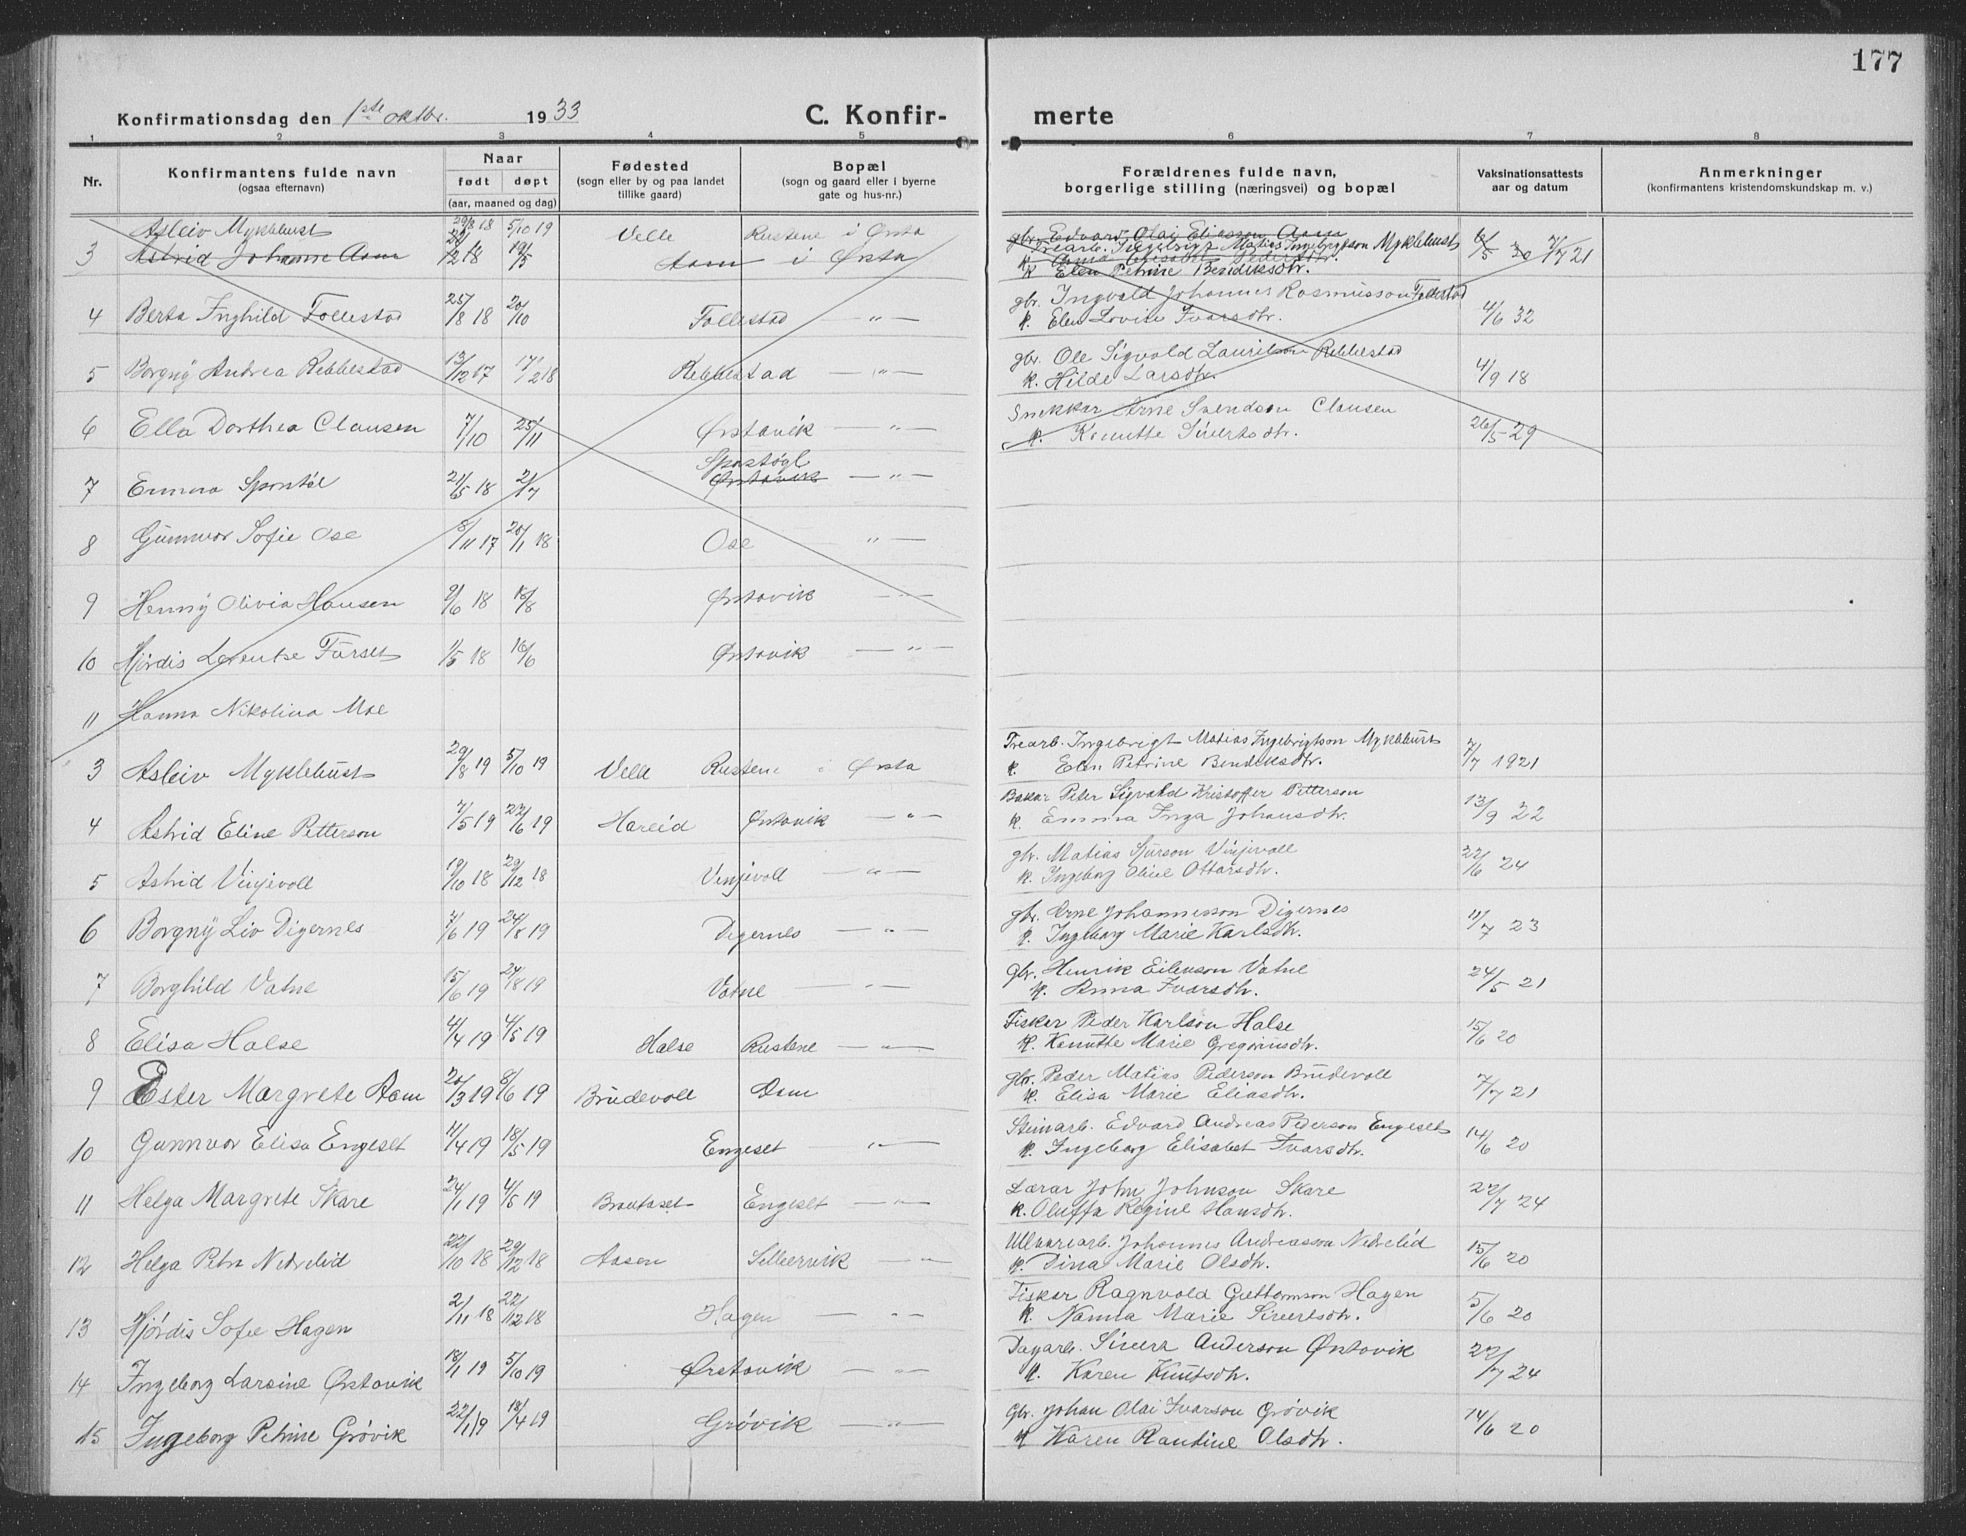 177
Konfirmationsdag den 1ste oktbr. 1933 C. Konfir- merte
1 2 3 4 5 6 7 8
Nr. Konfirmantens fulde navn (ogsaa efternavn) Naar født døpt (aar, maaned og dag) Fødested (sogn eller by og paa landet tillike gaard) Bopæl (sogn og gaard eller i byerne gate og hus-nr.) Forældrenes fulde navn, borgerlige stilling (næringsvei) og bopæl Vaksinationsattests aar og datum Anmerkninger (konfirmantens kristendomskundskap m. v.)
Asleiv Myklebust 29/8 18 5/10 19 Velle Rustene i Ørsta Trearb. Ingebrigt Matias Ingebrigtson Myklebust 7/7 21
k. Elen Petrine Bendiksdtr.
3 Astrid Johanne Aam 12 18 19/5 Aam i Ørsta gbr. Edvard Olai Eliasson Aam
4 Berta Inghild Follestad 25/8 18 20/10 Follestad — " — gbr. Ingvald Johannes Rasmusson Follestad 4/6 32
k. Elen Lovise Ivarsdtr.
5 Borgny Andrea Rebbestad 13/12 17 17/2 18 Rebbestad — " — gbr. Ole Sigvald Lauritson Rebbestad 4/9 18
k. Hilde Larsdtr.
6 Ella Dorthea Clausen 7/10 25/11 Ørstavik — " — Snekkar Arne Svendson Clausen 26/5 29
k. Knutte Sivertsdtr.
7 Emma Sporstøl 21/5 18 2/7 Ørstavik — " —
8 Gunnvor Sofie Ose 8/11 17 20/1 18 Ose — " —
9 Henny Olivia Hansen 9/6 18 18/8 Ørstavik — " —
10 Hjørdis Lorentse Furset 1/5 18 16/6 Ørstavik — " —
11 Hanna Nikolina Moe
3 Asleiv Myklebust 29/8 19 5/10 19 Velle Rustene i Ørsta Trearb. Ingebrigt Matias Ingebrigtson Myklebust 7/7 1921
k. Elen Petrine Bendiksdtr.
4 Astrid Eline Petterson 7/5 19 22/6 19 Hareid Ørstavik — " — Bakar Peter Sigvald Kristoffer Petterson 13/9 22
k. Emma Inga Johansdtr.
5 Astrid Vinjevoll 19/10 18 29/12 18 Vinjevoll — " — gbr. Matias Sjurson Vinjevoll 22/6 24
k. Ingeborg Oline Ottarsdtr.
6 Borgny Liv Digernes 7/6 19 24/8 19 Digernes — " — gbr. Arne Johannesson Digernes 11/7 23
k. Ingeborg Marie Karlsdtr.
7 Borghild Vatne 15/6 19 24/8 19 Vatne — " — gbr. Henrik Eilenson Vatne 24/5 21
k. Anna Ivarsdtr.
8 Elisa Halse 4/4 19 4/5 19 Halse Rustene — " — Fisker Peder Karlson Halse 15/6 20
k. Knutte Marie Gregoriusdtr.
9 Ester Margrete Aam 20/3 19 8/6 19 Brudevoll Aam gbr. Peder Matias Pederson Brudevoll 7/7 21
k. Elisa Marie Eliasdtr.
10 Gunnvor Elisa Engeset 11/4 19 18/5 19 Engeset — " — Steinarb. Edvard Andreas Pederson Engeset 14/6 20
k. Ingeborg Elisabet Ivarsdtr.
11 Helga Margrete Skare 24/1 19 4/5 19 Brautaset Engeset — " — Lærar John Johnson Skare 22/7 24
k. Oluffa Regine Hansdtr.
12 Helga Petra Nedrelid 22/10 18 29/12 18 Aasen Sellereivik — " — Ullvarearb. Johannes Andreasson Nedrelid 15/6 20
k. Dina Marie Olsdtr.
13 Hjørdis Sofie Hagen 2/11 18 22/12 18 Hagen — " — Fisker Ragnvald Guttormson Hagen 5/6 20
k. Nanna Marie Sivertsdtr.
14 Ingeborg Larsine Ørstavik 18/1 19 5/10 19 Ørstavik — " — Dagarb. Sivert Anderson Ørstavik 22/7 24
k. Karen Knutsdtr.
15 Ingeborg Petrine Grøvik 22/1 19 13/4 19 Grøvik — " — Gbr. Johan Olai Ivarson Grøvik 14/6 20
k Karen Rantine Olsdtr.